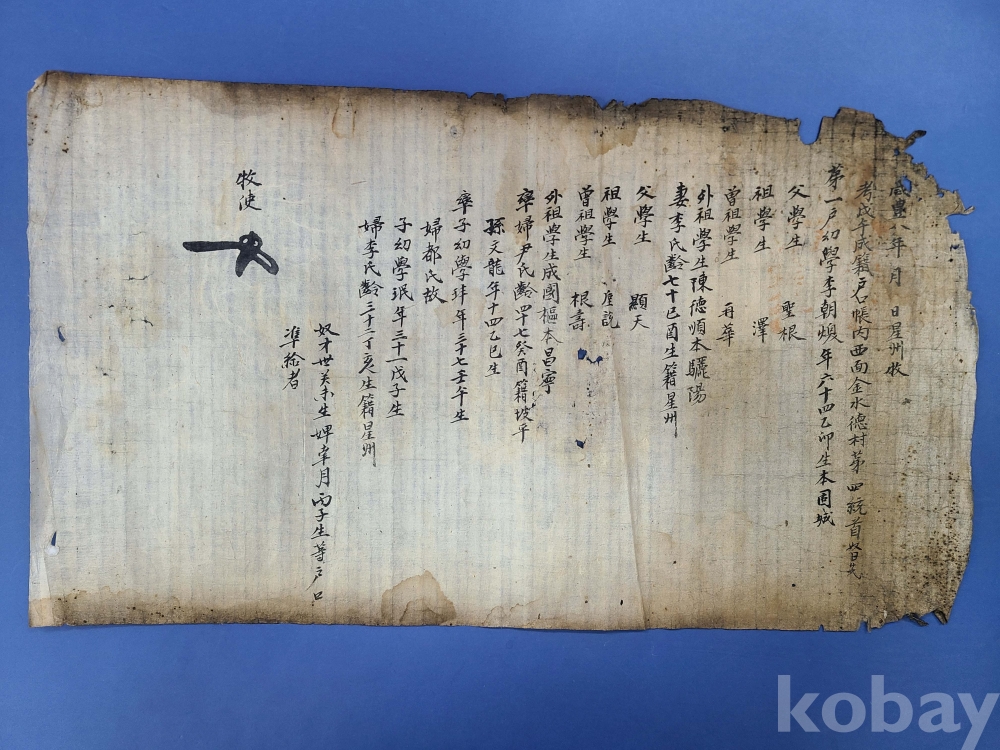 咸豊八年 月 日星州牧
考戊午成籍戶口帳內西面金水德村第四統首
第一戶幼學李朝煥年六十四乙卯生本固城
父學生 聖根
祖學生 澤
曾祖學生 再華
外祖學生陳德順本驪陽
妻李氏齡七十己酉生籍星州
父學生 顯天
祖學生 垕說
曾祖學生 根壽
外祖學生成國樞本昌寧
率婦尹氏齡四十七癸酉籍坡平
孫文龍年十四乙巳生
率子幼學 年三十七壬午生
婦都氏故
子幼學珉年三十一戊子生
婦李氏齡三十二丁亥生籍星州
奴才世 未生 婢幸月丙子生等戶口
準給者
牧使
kobay